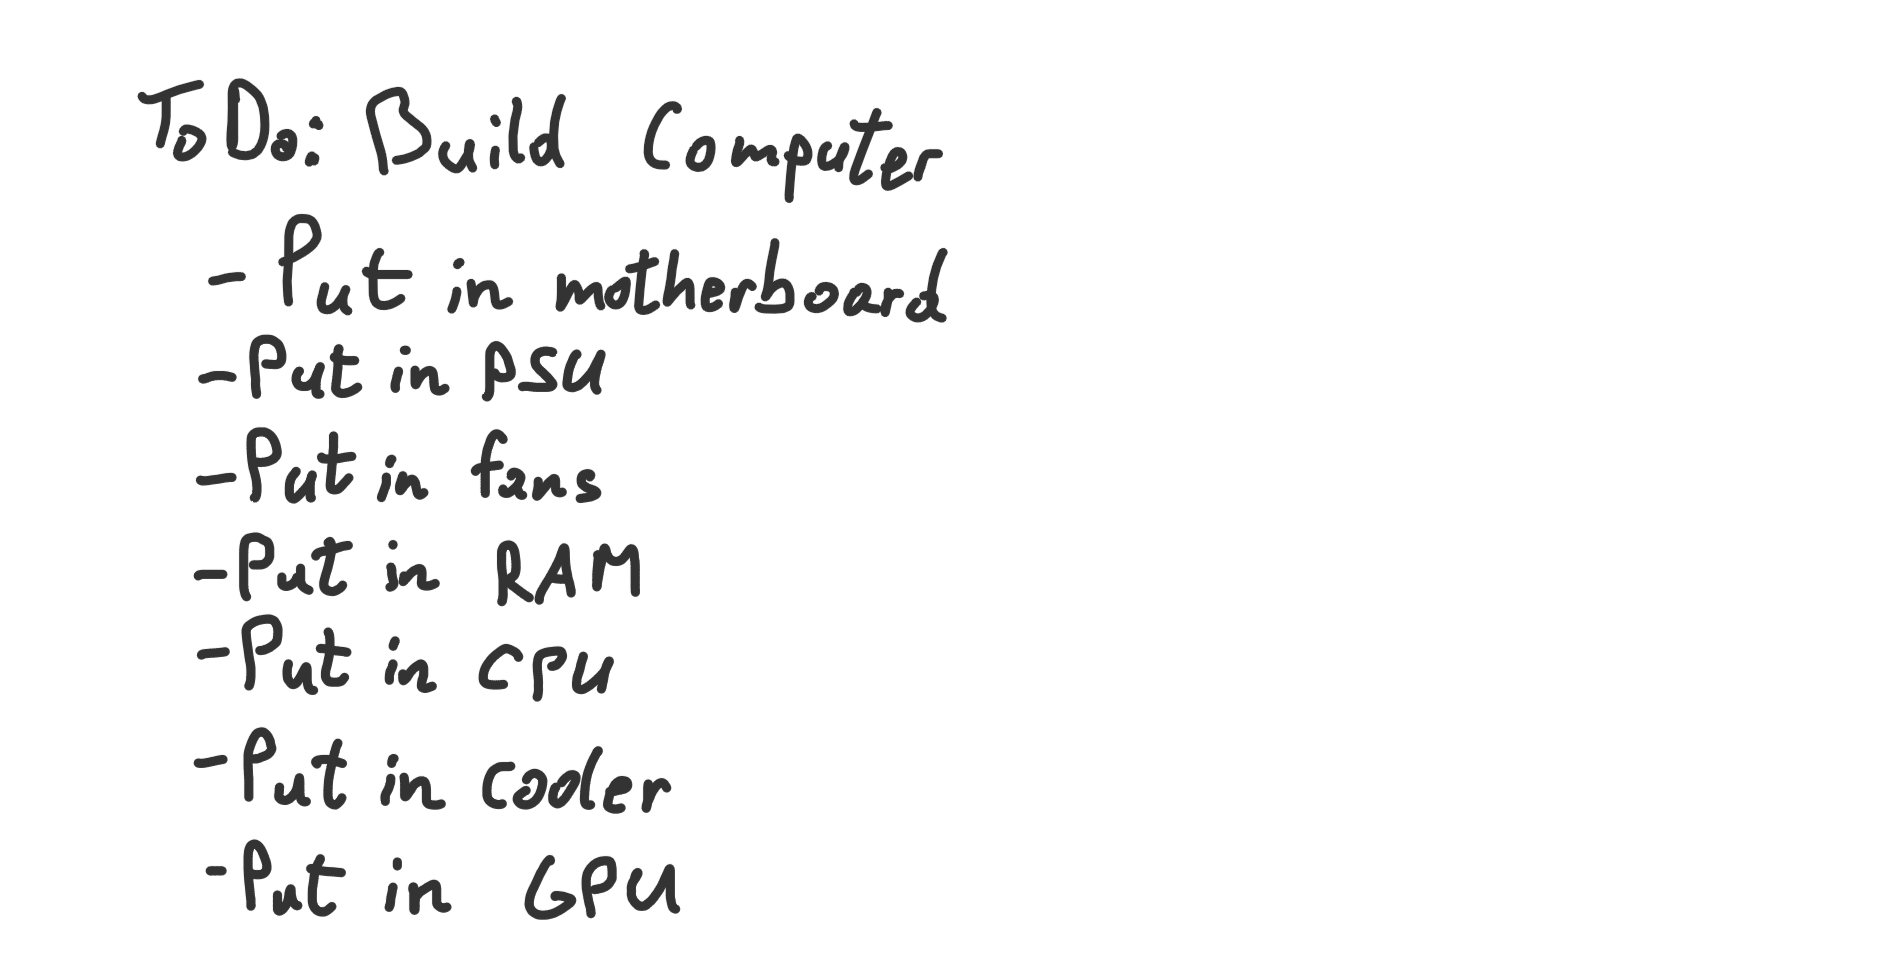 To Do: Build Computer
- Put in motherboard
- Put in PSU
- Put in fans
- Put in RAM
- Put in CPU
- Put in cooler
- Put in GPU